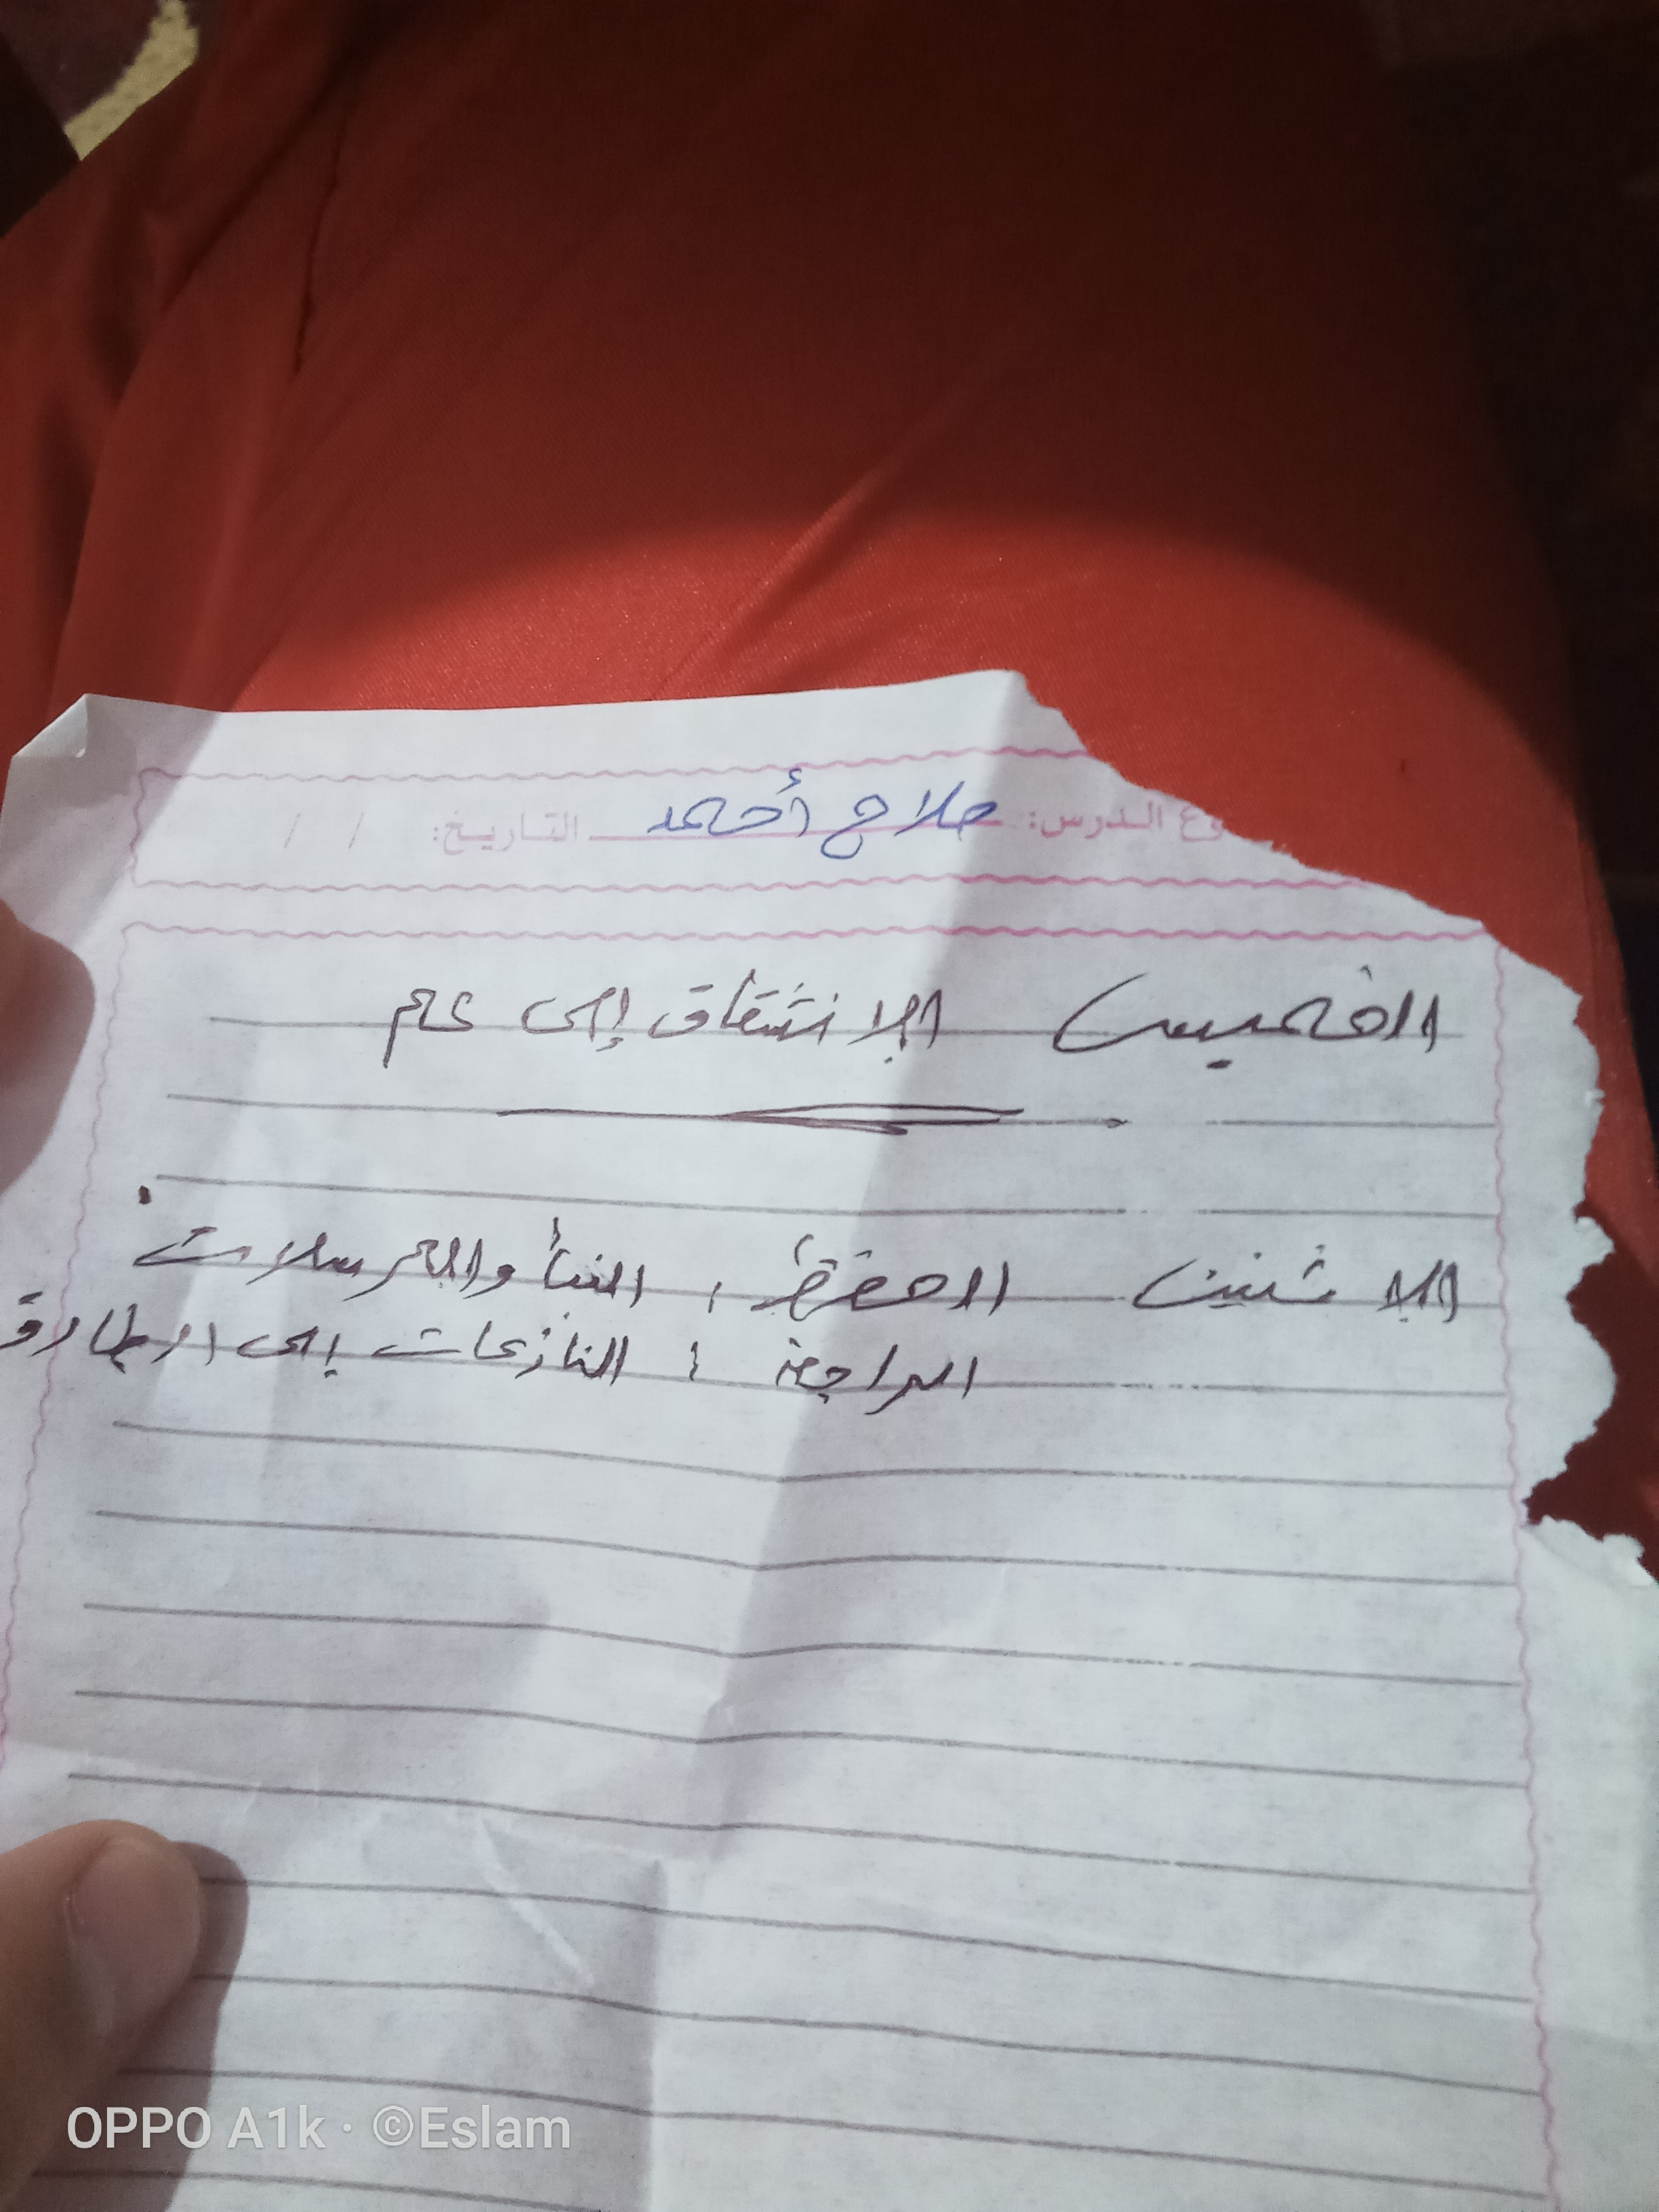 وع الدرس: صلاح أحمد التاريخ: / /
الخميس الانشقاق إلى عم
الاثنين الحفظ : النبأ والمرسلات
المراجعة : النازعات إلى الطارق
OPPO A1k · ©Eslam